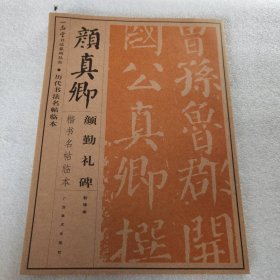 颜真卿
颜勤礼碑
楷书名帖临本
历代书法名帖临本
曾孙鲁郡開
國公真卿